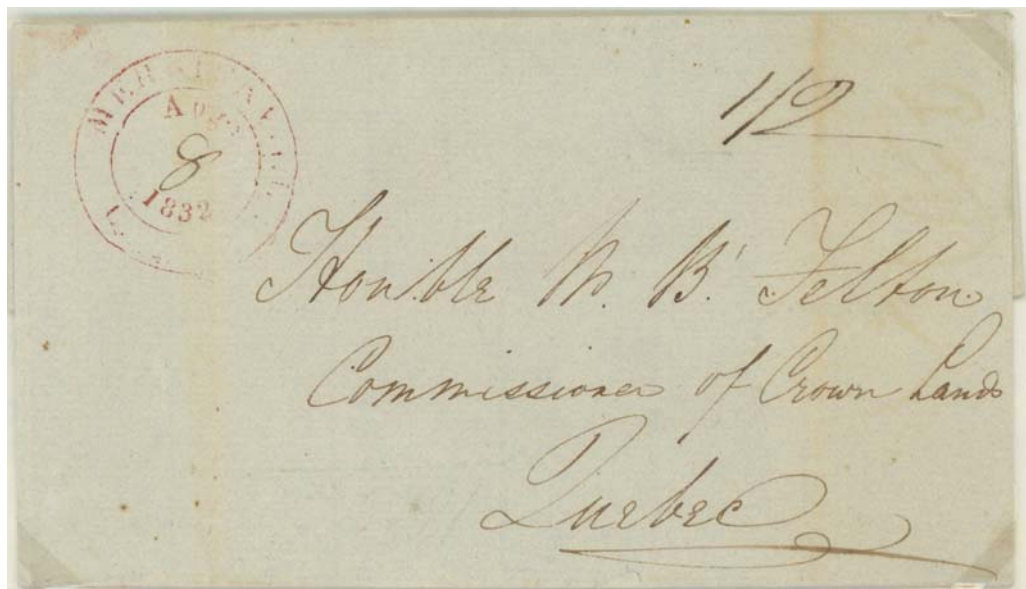 MERRICKVILLE
Aug
8
1832
1/2
Honible W. B. Felton
Commissioner of Crown Lands
Quebec